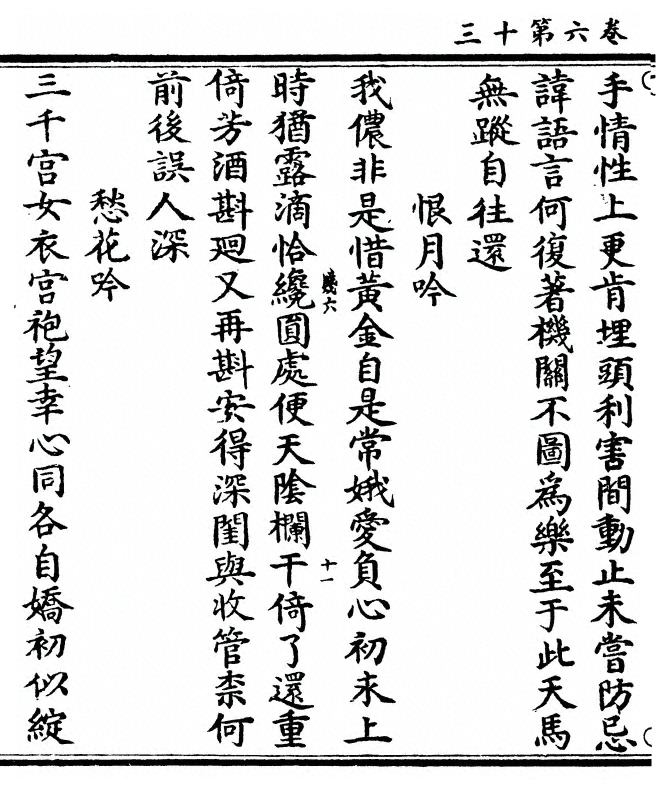 三十第六卷
手情性上更肯埋頭利害間動止未嘗防忌
諱語言何復著機關不圖為樂至于此天馬
無蹤自往還
恨月吟
我儂非是惜黃金自是常娥愛負心初未上
時猶露滴恰纔圓處便天陰欄干倚了還重
倚芳酒斟廻又再斟安得深閨與收管柰何
前後誤人深
愁花吟
三千宮女衣宮袍望幸心同各自嬌初似綻
幾六
十一